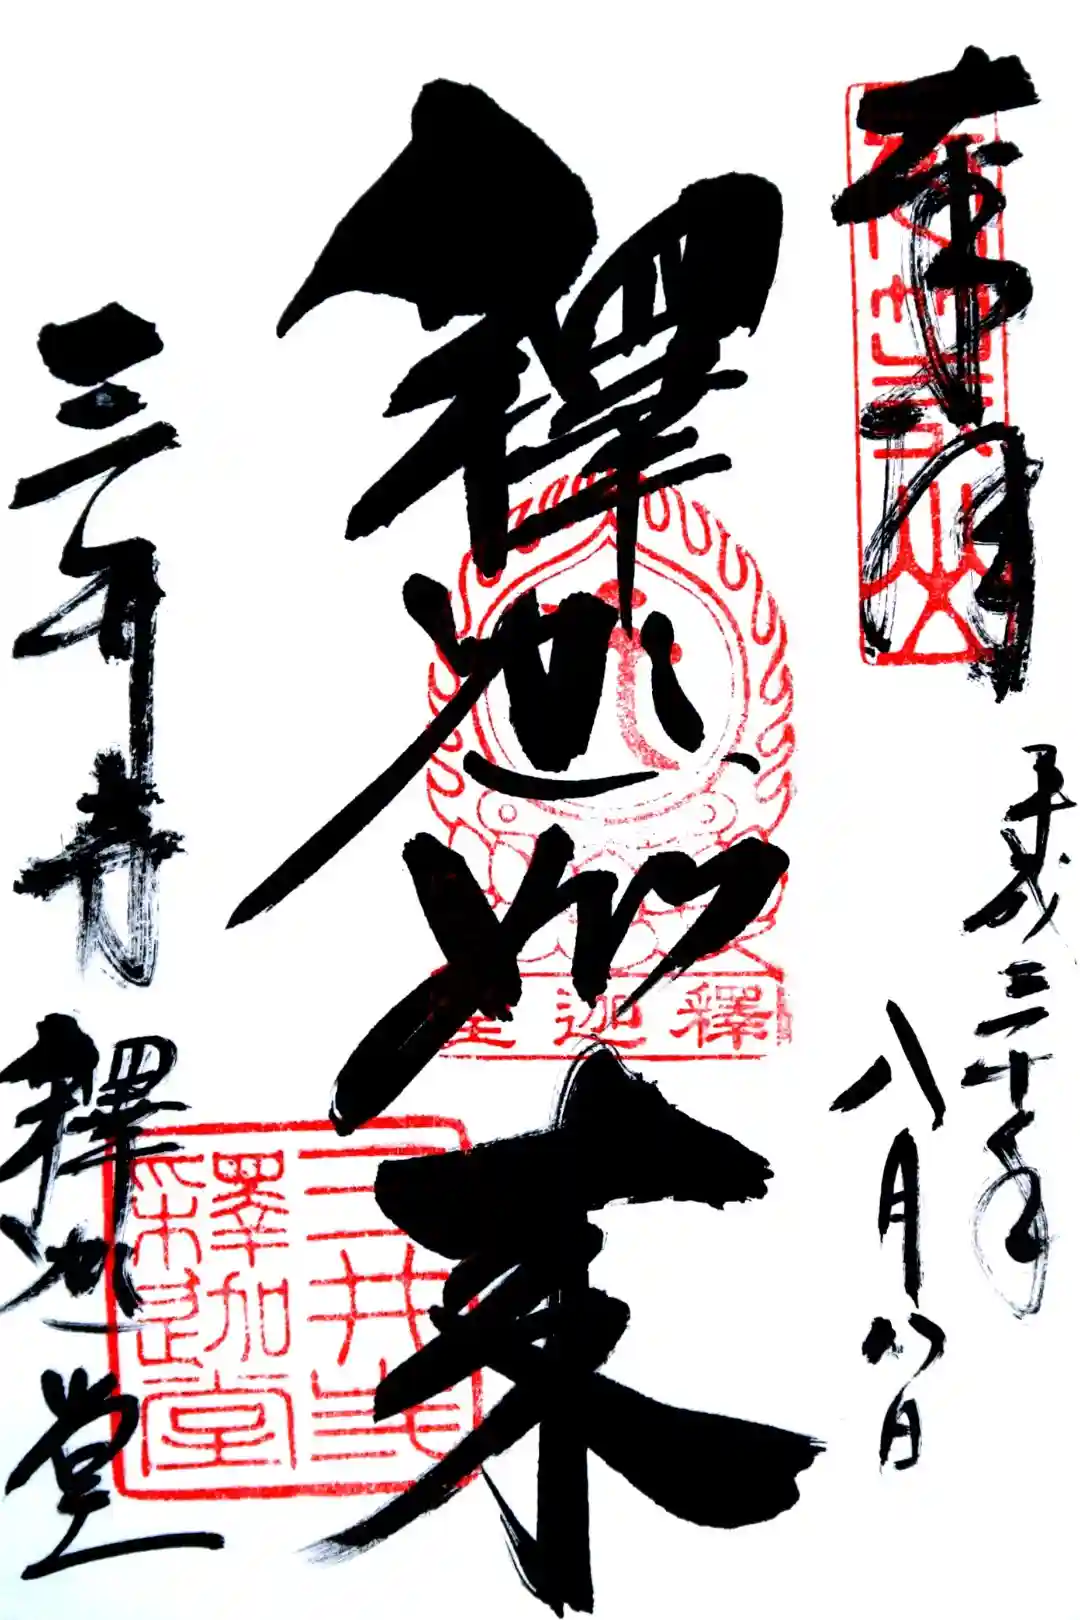 奉拝
平成三十年
八月八日
釋迦如来
釋迦堂
三井寺
釋迦堂
三井寺
釋迦堂